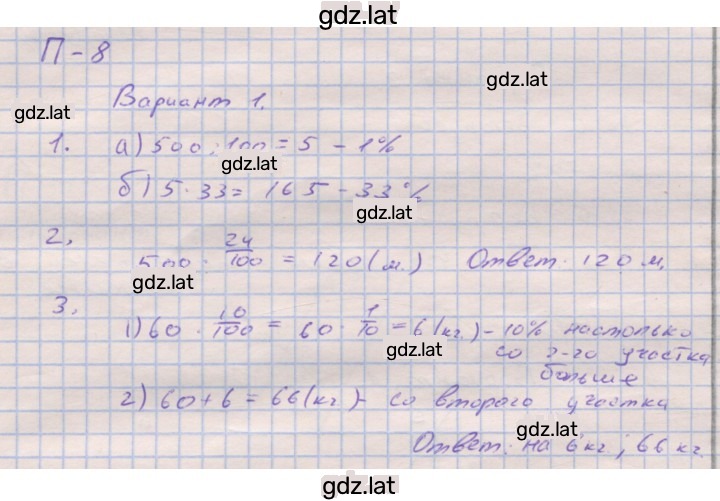 gdz.lat
П - 8
gdz.lat
Вариант 1.
gdz.lat
1. а) 500 : 100 = 5 - 1%
gdz.lat
б) 5 · 33 = 165 - 33%
gdz.lat
2. 500 · 24/100 = 120 (м.) Ответ: 120 м.
gdz.lat
3. 1) 60 · 10/100 = 60 · 1/10 = 6 (кг.) - 10% настолько
gdz.lat
со 2-го участка
больше
2) 60 + 6 = 66 (кг) - со второго участка
gdz.lat
Ответ: на 6 кг; 66 кг.
gdz.lat